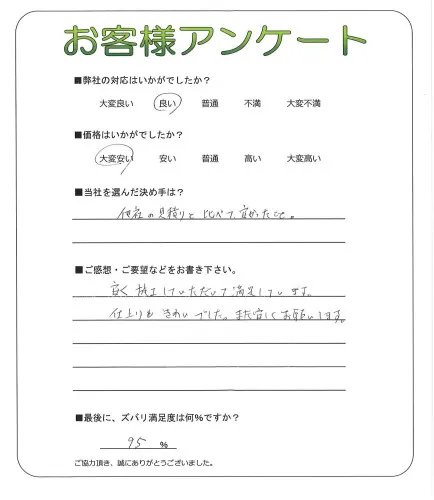 お客様アンケート
■弊社の対応はいかがでしたか？
大変良い 良い 普通 不満 大変不満
■価格はいかがでしたか？
大変安い 安い 普通 高い 大変高い
■当社を選んだ決め手は？
他社の見積りと比べて安かたこと。
■ご感想・ご要望などをお書き下さい。
安く施工していただいて満足しています。
仕上りもきれいでした。また宜しくお願いします。
■最後に、ズバリ満足度は何％ですか？
95 ％
ご協力頂き、誠にありがとうございました。